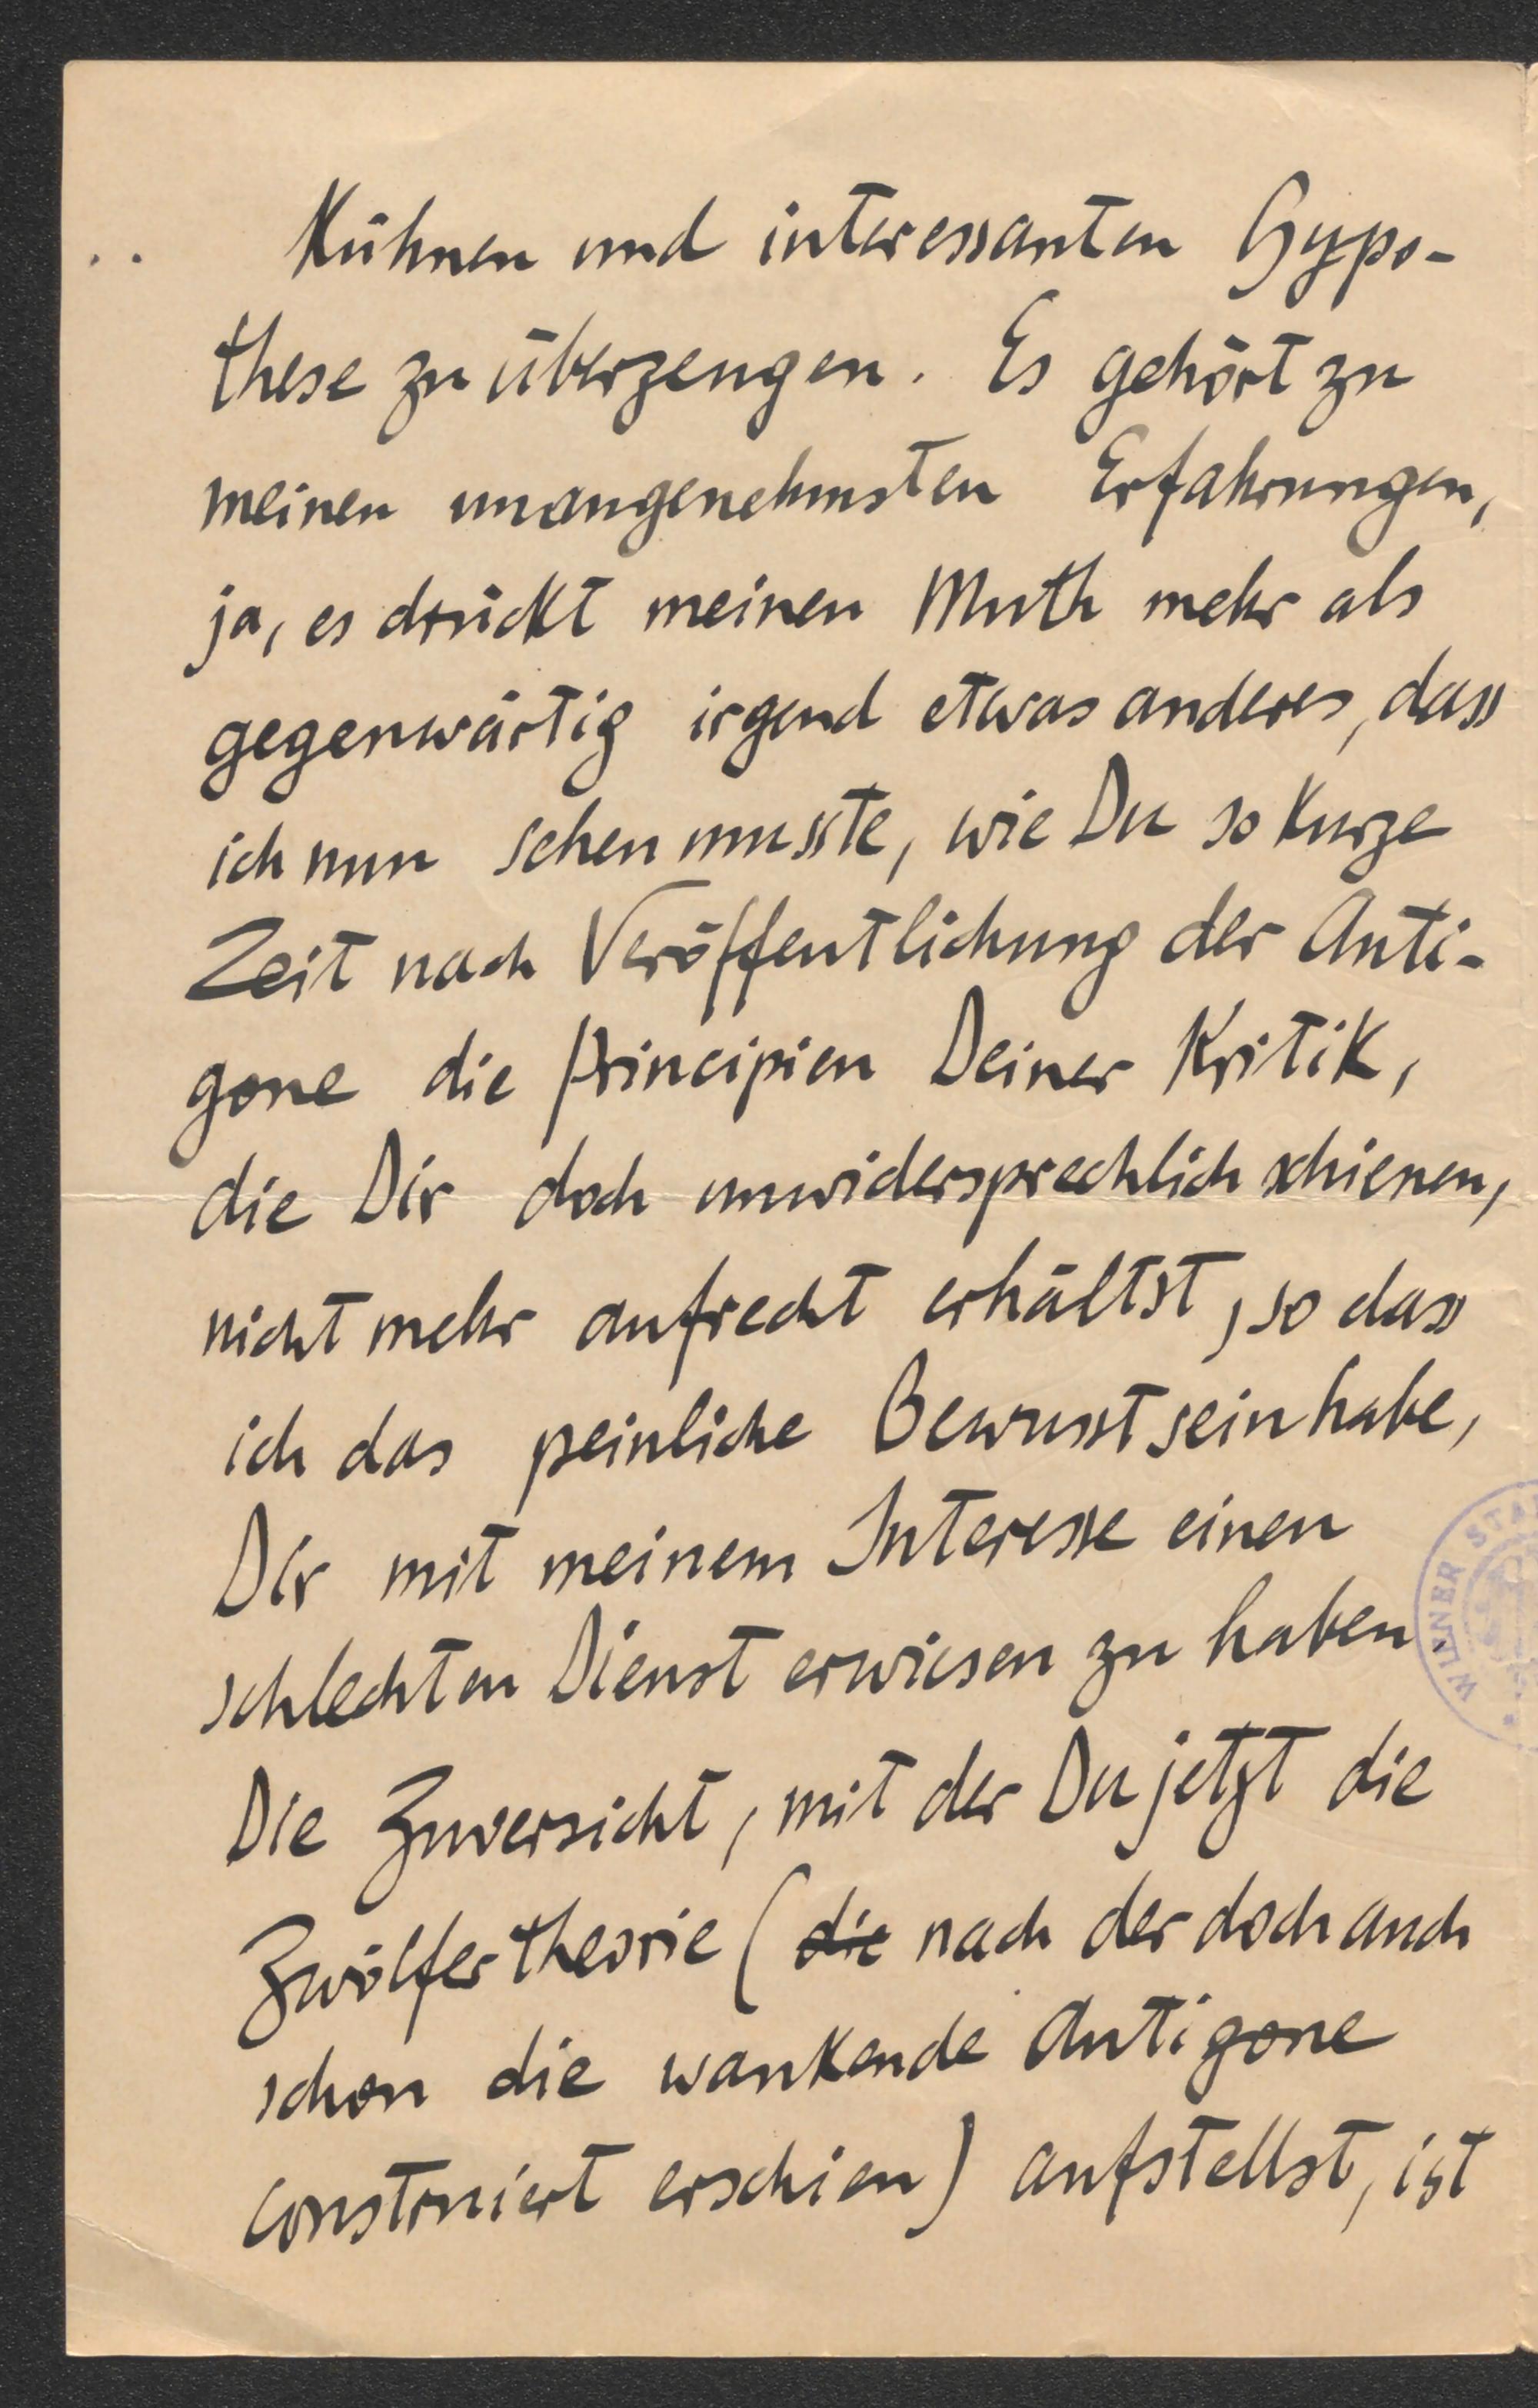 kühnen und interessanten Hypo-
these zu überzeugen. Es gehört zu
meinen unangenehmsten Erfahrungen,
ja, es drückt meinen Muth mehr als
gegenwärtig irgend etwas anderes, dass
ich nun sehen musste, wie Du so kurze
Zeit nach Veröffentlichung der Anti-
gone die Principien Deiner Kritik,
die Dir doch unwidersprechlich schienen,
nicht mehr aufrecht erhältst, so dass
ich das peinliche Bewusstsein habe,
Dir mit meinem Interesse einen
schlechten Dienst erwiesen zu haben.
Die Zuversicht, mit der Du jetzt die
Zwölfertheorie (die nach der doch auch
schon die wankende Antigone
construiert erschien) aufstellst, ist
WIENER